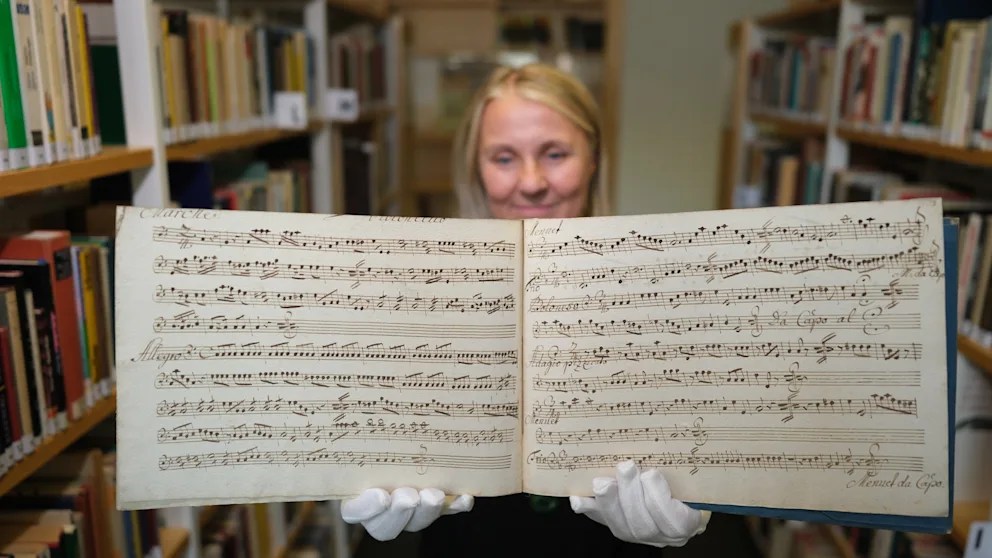 Marche Violoncello
Allegro
Menuet
M. da Capo
Menuet
Da Capo al
Adagio
Menuet
Menuet da Capo.